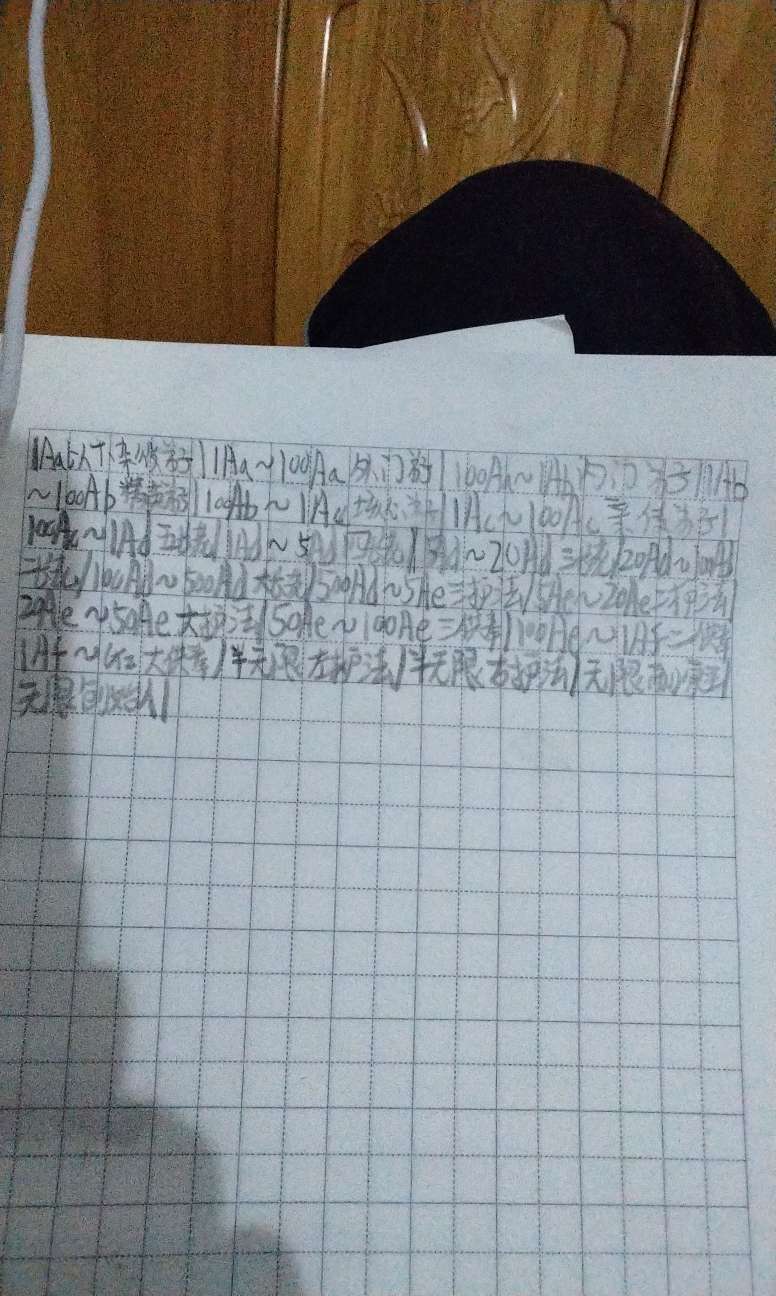 1Aa以下杂役弟子|1Aa~100Aa外门弟子|100Aa~1Ab内门弟子|1Ab
~100Ab精英弟子|100Ab~1Ac核心弟子|1Ac~100Ac亲传弟子|
100Ac~1Ad五长老|1Ad~5Ad四长老|5Ad~20Ad三长老|20Ad~100Ad
二长老|100Ad~500Ad大长老|500Ad~5Ae三护法|5Ae~20Ae二护法|
20Ae~50Ae大护法|50Ae~100Ae三供奉|100Ae~1Af二供奉
1Af~ 大供奉|半无限左护法|半无限右护法|无限副掌门|
无限创始人|